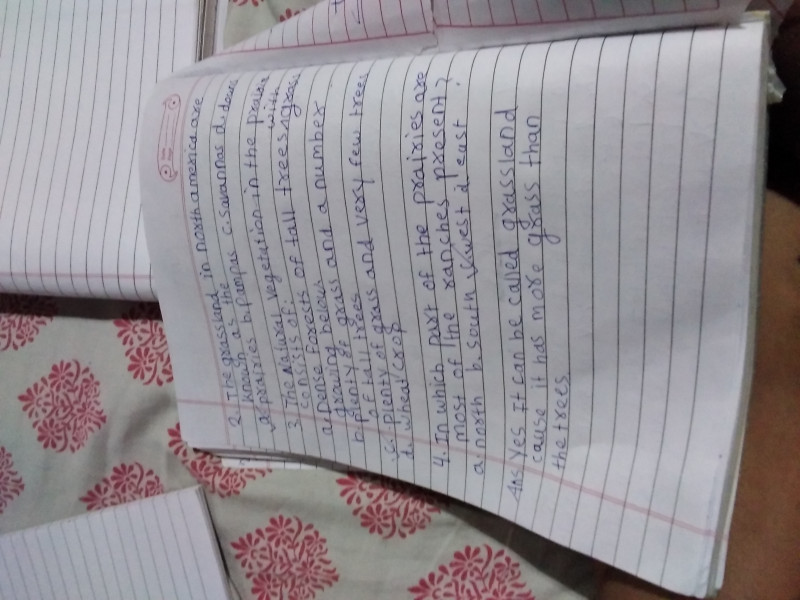 2. The grassland in north america are
known as the
a. prairies b. pampas c. savannas d. downs
3. The Natural vegetation in the prairie
consists of:
a. Dense forests of tall trees with grass
growing below
b. plenty of grass and a number
of tall trees
c. Plenty of grass and very few trees
d. wheat crop
4. In which part of the prairies are
most of the ranches present?
a. north b. south c. west d. east.
Ans Yes It can be called grassland
cause it has more grass than
the trees